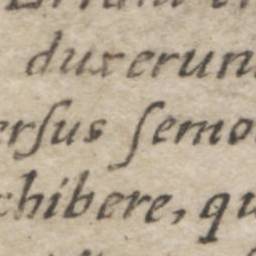 duxerun
erſus ſemo
hibere, qu